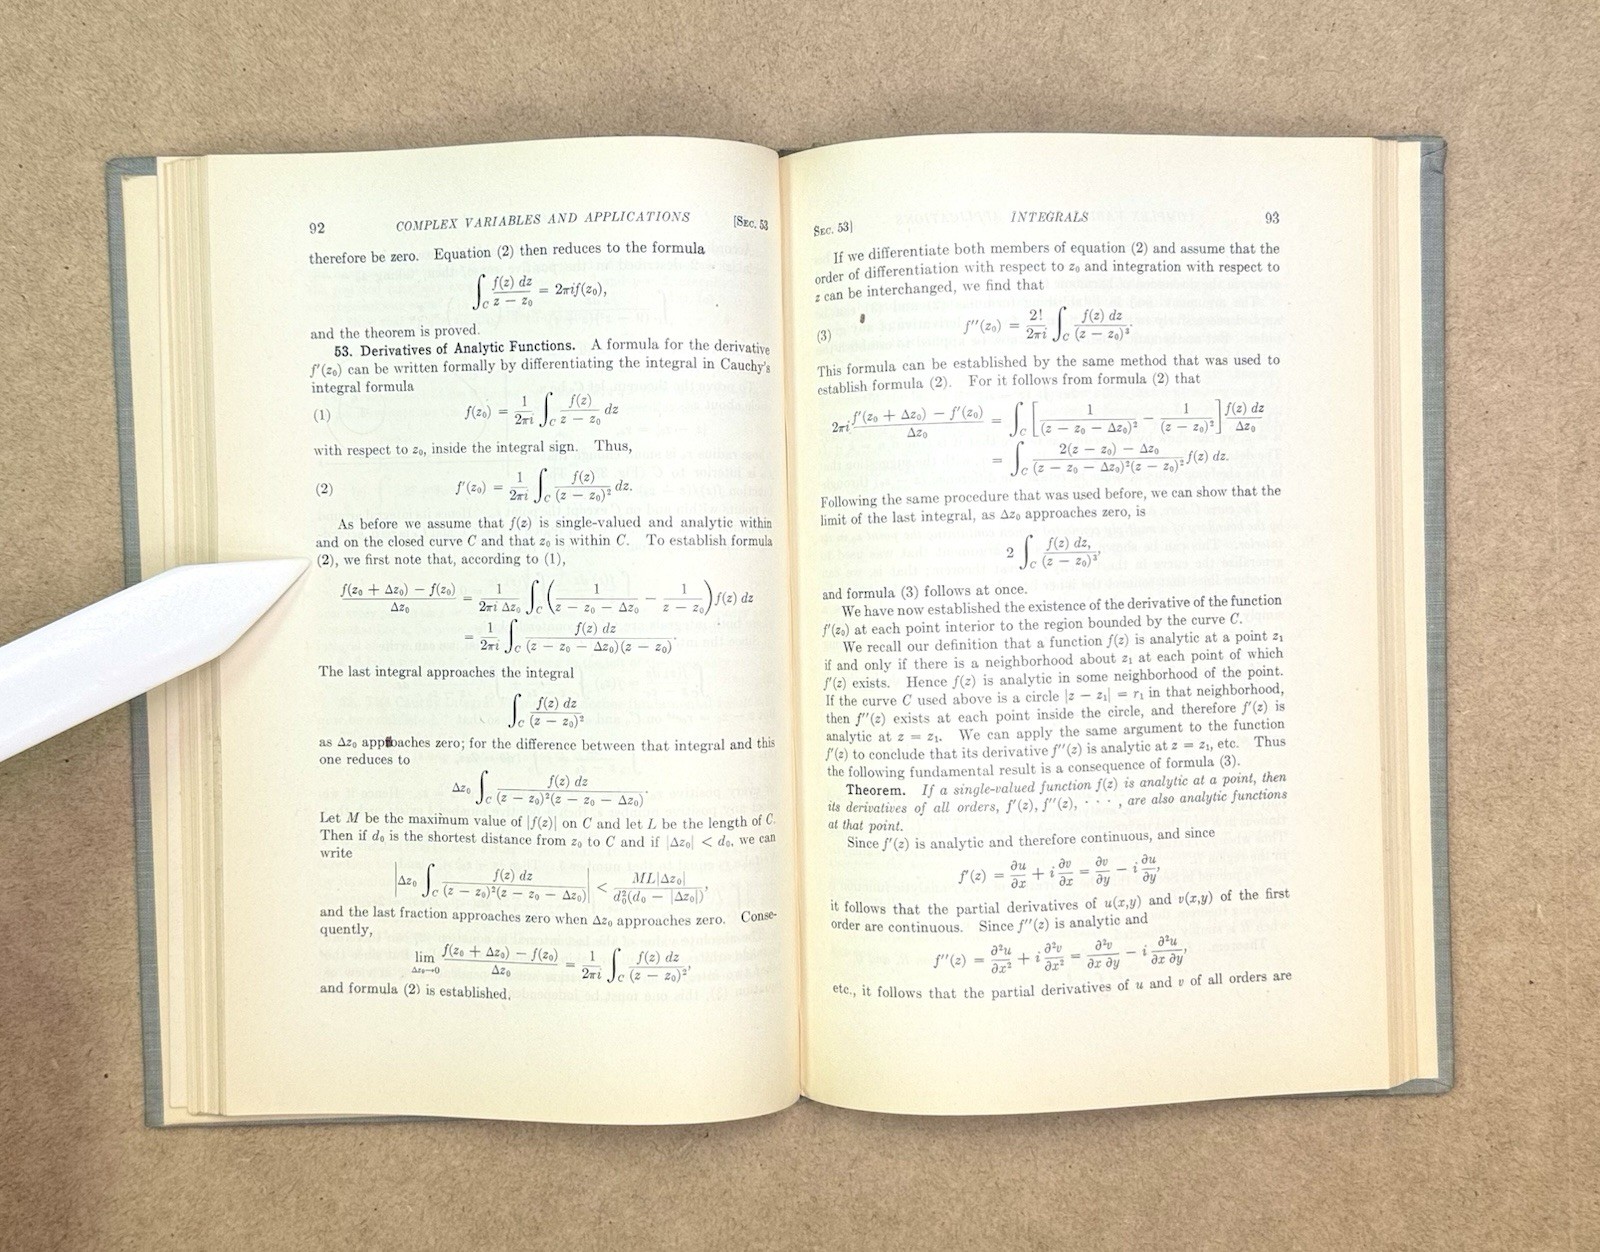 92 COMPLEX VARIABLES AND APPLICATIONS [SEC. 53
therefore be zero. Equation (2) then reduces to the formula
∫_C f(z) dz / (z − z₀) = 2πif(z₀),
and the theorem is proved.
53. Derivatives of Analytic Functions. A formula for the derivative
f′(z₀) can be written formally by differentiating the integral in Cauchy's
integral formula
(1) f(z₀) = 1/(2πi) ∫_C f(z)/(z − z₀) dz
with respect to z₀, inside the integral sign. Thus,
(2) f′(z₀) = 1/(2πi) ∫_C f(z)/(z − z₀)² dz.
As before we assume that f(z) is single-valued and analytic within
and on the closed curve C and that z₀ is within C. To establish formula
(2), we first note that, according to (1),
(f(z₀ + Δz₀) − f(z₀))/Δz₀ = 1/(2πi Δz₀) ∫_C (1/(z − z₀ − Δz₀) − 1/(z − z₀)) f(z) dz
= 1/(2πi) ∫_C f(z) dz / ((z − z₀ − Δz₀)(z − z₀)).
The last integral approaches the integral
∫_C f(z) dz / (z − z₀)²
as Δz₀ approaches zero; for the difference between that integral and this
one reduces to
Δz₀ ∫_C f(z) dz / ((z − z₀)²(z − z₀ − Δz₀)).
Let M be the maximum value of |f(z)| on C and let L be the length of C.
Then if d₀ is the shortest distance from z₀ to C and if |Δz₀| < d₀, we can
write
|Δz₀ ∫_C f(z) dz / ((z − z₀)²(z − z₀ − Δz₀))| < ML|Δz₀| / (d₀²(d₀ − |Δz₀|)),
and the last fraction approaches zero when Δz₀ approaches zero. Conse-
quently,
lim_{Δz₀→0} (f(z₀ + Δz₀) − f(z₀))/Δz₀ = 1/(2πi) ∫_C f(z) dz / (z − z₀)²,
and formula (2) is established.
SEC. 53] INTEGRALS 93
If we differentiate both members of equation (2) and assume that the
order of differentiation with respect to z₀ and integration with respect to
z can be interchanged, we find that
(3) f″(z₀) = 2!/(2πi) ∫_C f(z) dz / (z − z₀)³.
This formula can be established by the same method that was used to
establish formula (2). For it follows from formula (2) that
2πi (f′(z₀ + Δz₀) − f′(z₀))/Δz₀ = ∫_C [1/(z − z₀ − Δz₀)² − 1/(z − z₀)²] f(z) dz/Δz₀
= ∫_C (2(z − z₀) − Δz₀)/((z − z₀ − Δz₀)²(z − z₀)²) f(z) dz.
Following the same procedure that was used before, we can show that the
limit of the last integral, as Δz₀ approaches zero, is
2 ∫_C f(z) dz, / (z − z₀)³,
and formula (3) follows at once.
We have now established the existence of the derivative of the function
f′(z₀) at each point interior to the region bounded by the curve C.
We recall our definition that a function f(z) is analytic at a point z₁
if and only if there is a neighborhood about z₁ at each point of which
f′(z) exists. Hence f(z) is analytic in some neighborhood of the point.
If the curve C used above is a circle |z − z₁| = r₁ in that neighborhood,
then f″(z) exists at each point inside the circle, and therefore f′(z) is
analytic at z = z₁. We can apply the same argument to the function
f′(z) to conclude that its derivative f″(z) is analytic at z = z₁, etc. Thus
the following fundamental result is a consequence of formula (3).
Theorem. If a single-valued function f(z) is analytic at a point, then
its derivatives of all orders, f′(z), f″(z), · · · , are also analytic functions
at that point.
Since f′(z) is analytic and therefore continuous, and since
f′(z) = ∂u/∂x + i ∂v/∂x = ∂v/∂y − i ∂u/∂y,
it follows that the partial derivatives of u(x,y) and v(x,y) of the first
order are continuous. Since f″(z) is analytic and
f″(z) = ∂²u/∂x² + i ∂²v/∂x² = ∂²v/∂x ∂y − i ∂²u/∂x ∂y,
etc., it follows that the partial derivatives of u and v of all orders are